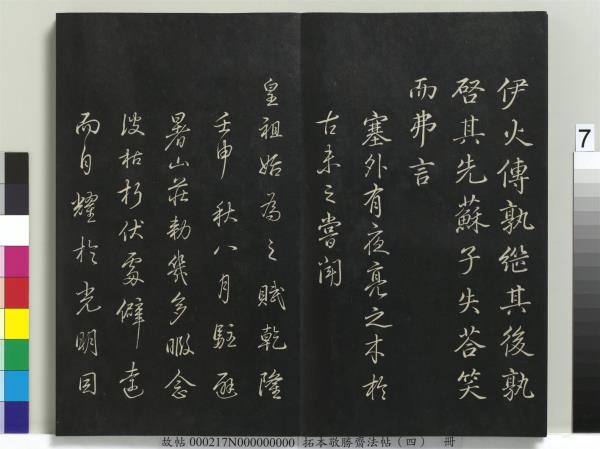 伊火傳孰繼其後孰
啓其先蘇子失荅笑
而弗言
塞外有夜亮之木於
古未之嘗聞
皇祖始為之賦乾隆
壬申秋八月駐避
暑山莊勅幾多暇念
彼枯朽伏處僻遠
而自耀於光明因
7
故帖000217N000000000 拓本敬勝齋法帖（四） 冊